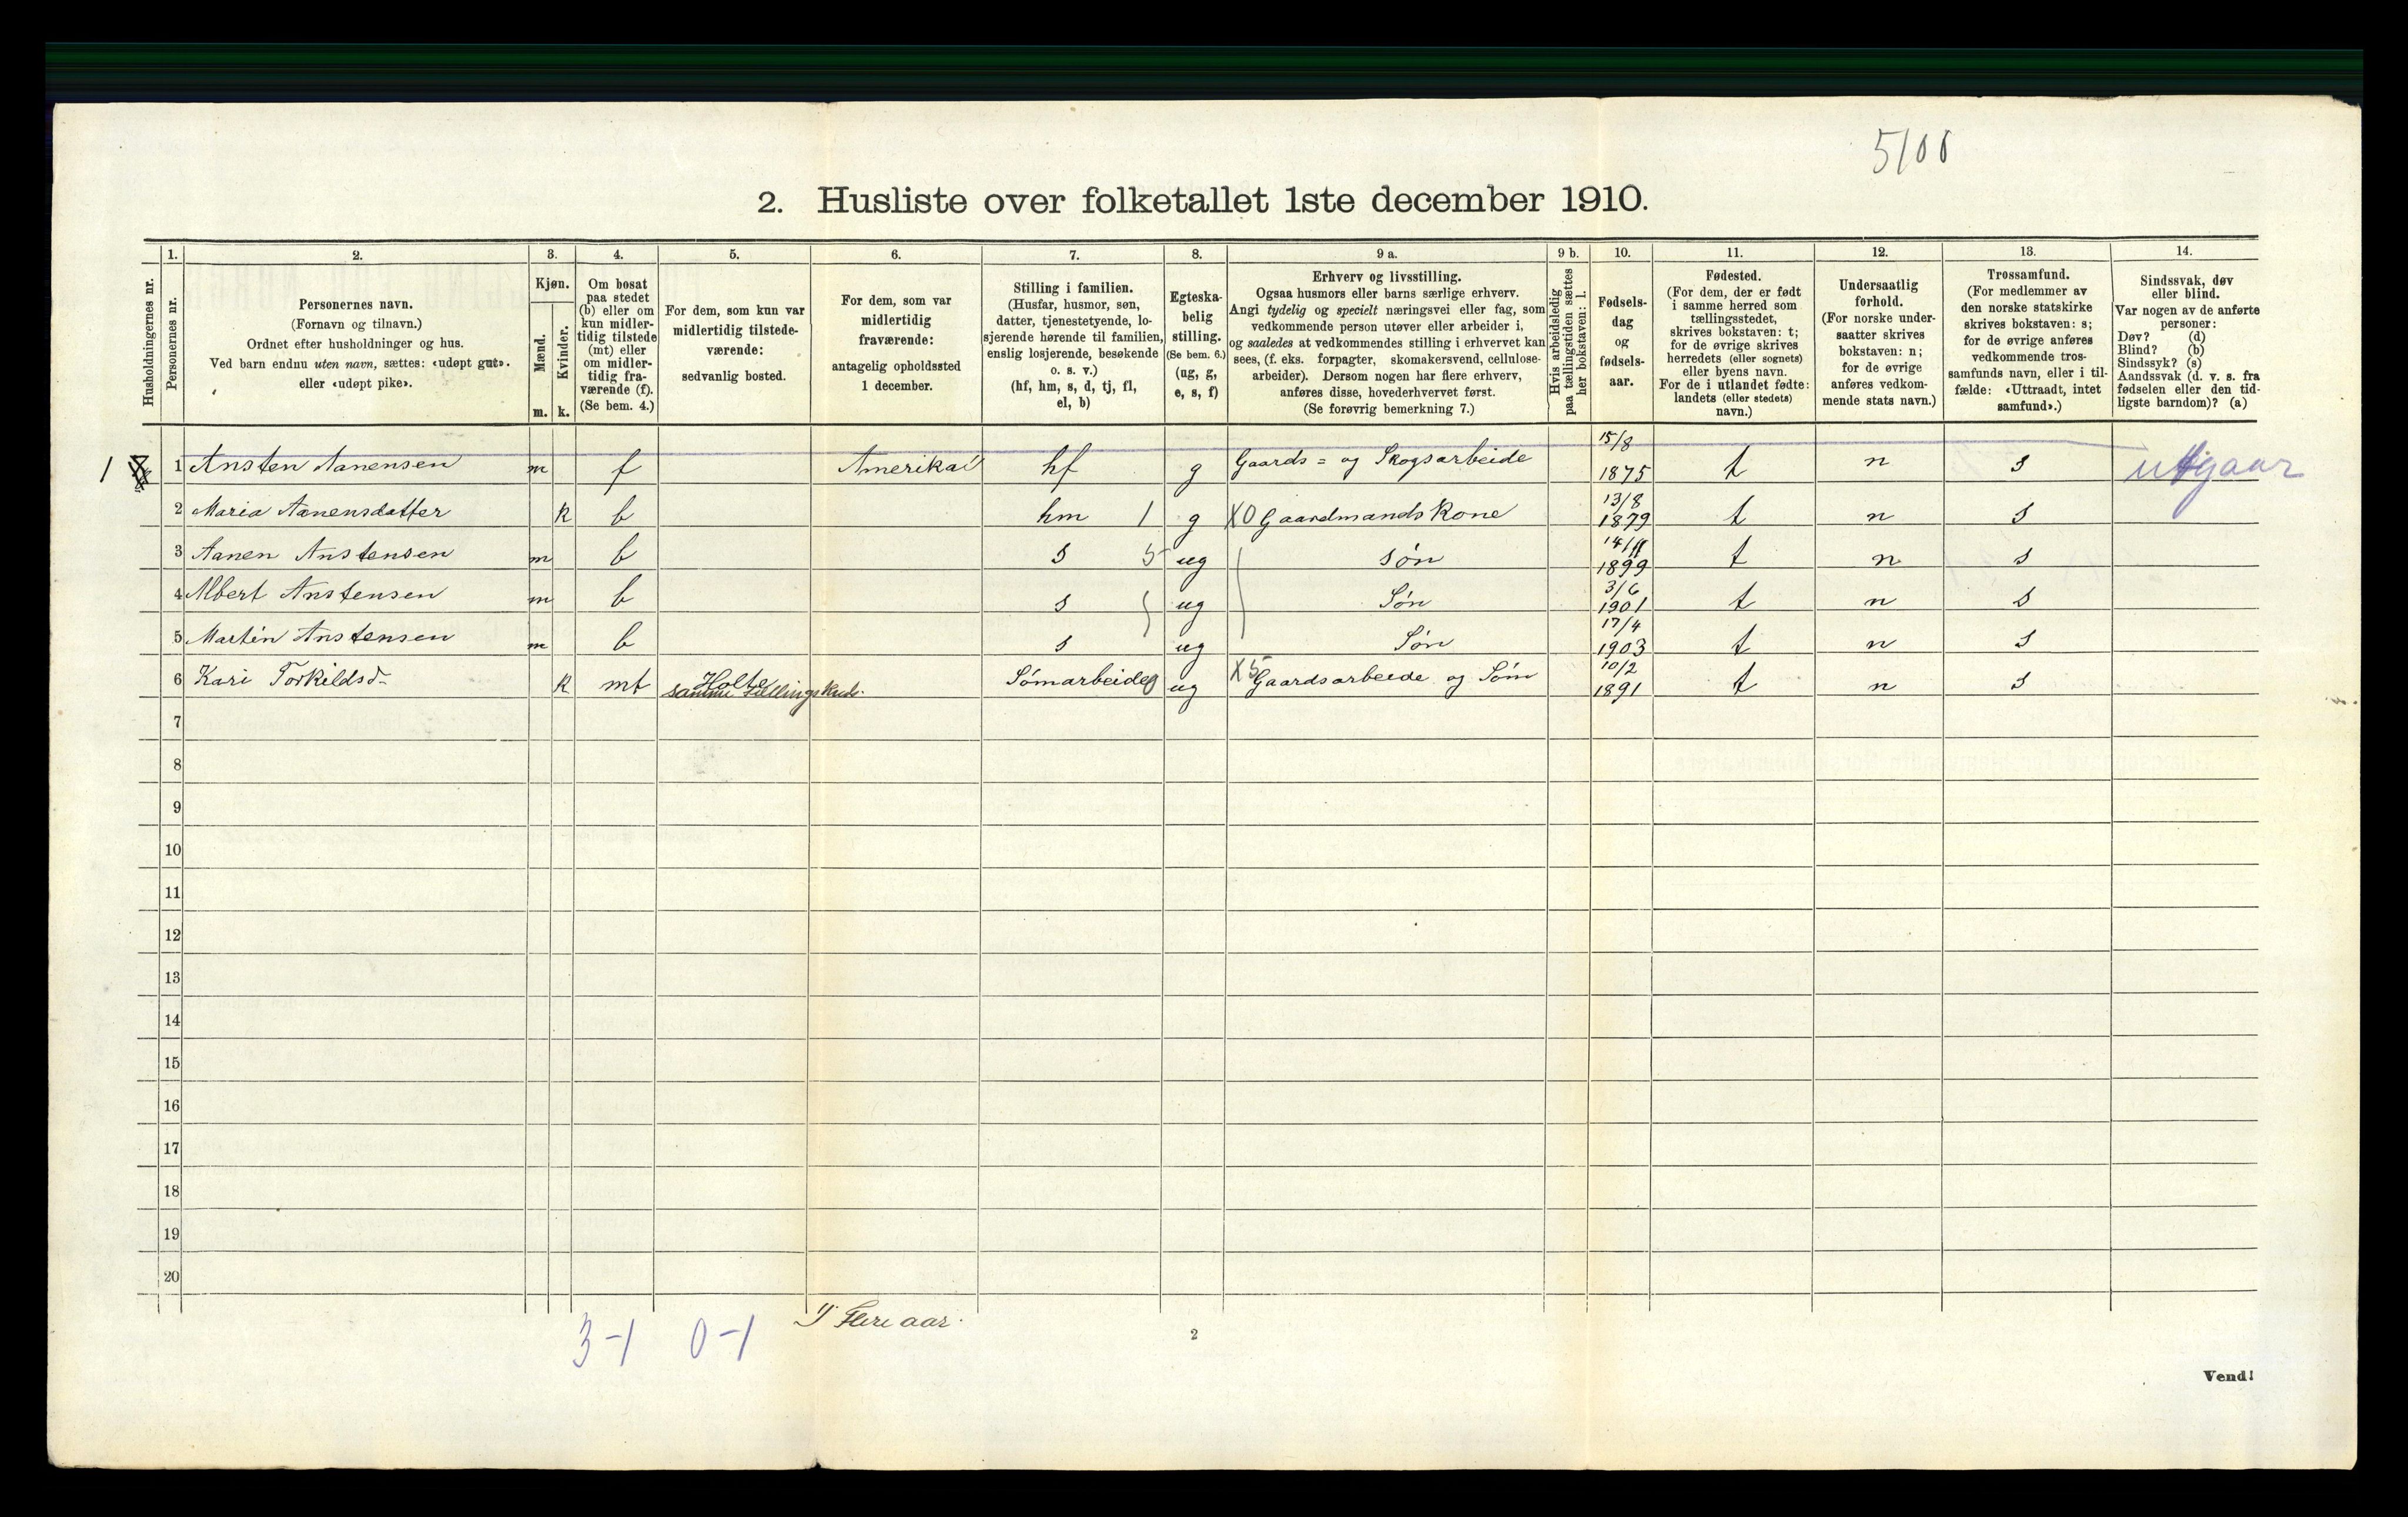 5100
2. Husliste over folketallet 1ste december 1910.
Husholdningernes nr.
1.
Personernes nr.
2.
Personernes navn.
(Fornavn og tilnavn.)
Ordnet efter husholdninger og hus.
Ved barn endnu uten navn, sættes: «udøpt gut».
eller «udøpt pike».
3.
Kjøn.
Mænd.
Kvinder.
m. k.
4.
Om bosat
paa stedet
(b) eller om
kun midler-
tidig tilstede
(mt) eller
om midler-
tidig fra-
værende (f).
(Se bem. 4.)
5.
For dem, som kun var
midlertidig tilstede-
værende:
sedvanlig bosted.
6.
For dem, som var
midlertidig
fraværende:
antagelig opholdssted
1 december.
7.
Stilling i familien.
(Husfar, husmor, søn,
datter, tjenestetyende, lo-
sjerende hørende til familien,
enslig losjerende, besøkende
o. s. v.)
(hf, hm, s, d, tj, fl,
el, b)
8.
Egteska-
belig
stilling.
(Se bem. 6.)
(ug, g,
e, s, f)
9 a.
Erhverv og livsstilling.
Ogsaa husmors eller barns særlige erhverv.
Angi tydelig og specielt næringsvei eller fag, som
vedkommende person utøver eller arbeider i,
og saaledes at vedkommendes stilling i erhvervet kan
sees, (f. eks. forpagter, skomakersvend, cellulose-
arbeider). Dersom nogen har flere erhverv,
anføres disse, hovederhvervet først.
(Se forøvrig bemerkning 7.)
9 b.
Hvis arbeidsledig
paa tællingstiden sættes
her bokstaven: l.
10.
Fødsels-
dag
og
fødsels-
aar.
11.
Fødested.
(For dem, der er født
i samme herred som
tællingsstedet,
skrives bokstaven: t;
for de øvrige skrives
herredets (eller sognets)
eller byens navn.
For de i utlandet fødte:
landets (eller stedets)
navn.)
12.
Undersaatlig
forhold.
(For norske under-
saatter skrives
bokstaven: n;
for de øvrige
anføres vedkom-
mende stats navn.)
13.
Trossamfund.
(For medlemmer av
den norske statskirke
skrives bokstaven: s;
for de øvrige anføres
vedkommende tros-
samfunds navn, eller i til-
fælde: «Uttraadt, intet
samfund».)
14.
Sindssvak, døv
eller blind.
Var nogen av de anførte
personer:
Døv? (d)
Blind? (b)
Sindssyk? (s)
Aandssvak (d. v. s. fra
fødselen eller den tid-
ligste barndom)? (a)
1 1 Ansten Aanensen m f Amerika 1) hf g Gaards= og Skogsarbeide 15/8 1875 t n s utgaar
2 Maria Aanensdatter k b hm 1 g X0 Gaardmands Kone 13/8 1879 t n s
3 Aanen Anstensen m b s 5 ug søn 14/11 1899 t n s
4 Albert Anstensen m b s ug Søn 3/6 1901 t n s
5 Martin Anstensen m b s ug Søn 17/4 1903 t n s
6 Kari Torkildsd k mt Holte samme tællingskreds. Sømarbeide ug X5 Gaardsarbeide og Søm 10/2 1891 t n s
7
8
9
10
11
12
13
14
15
16
17
18
19
20
1) Flere aar.
3-1 0-1
2
Vend!